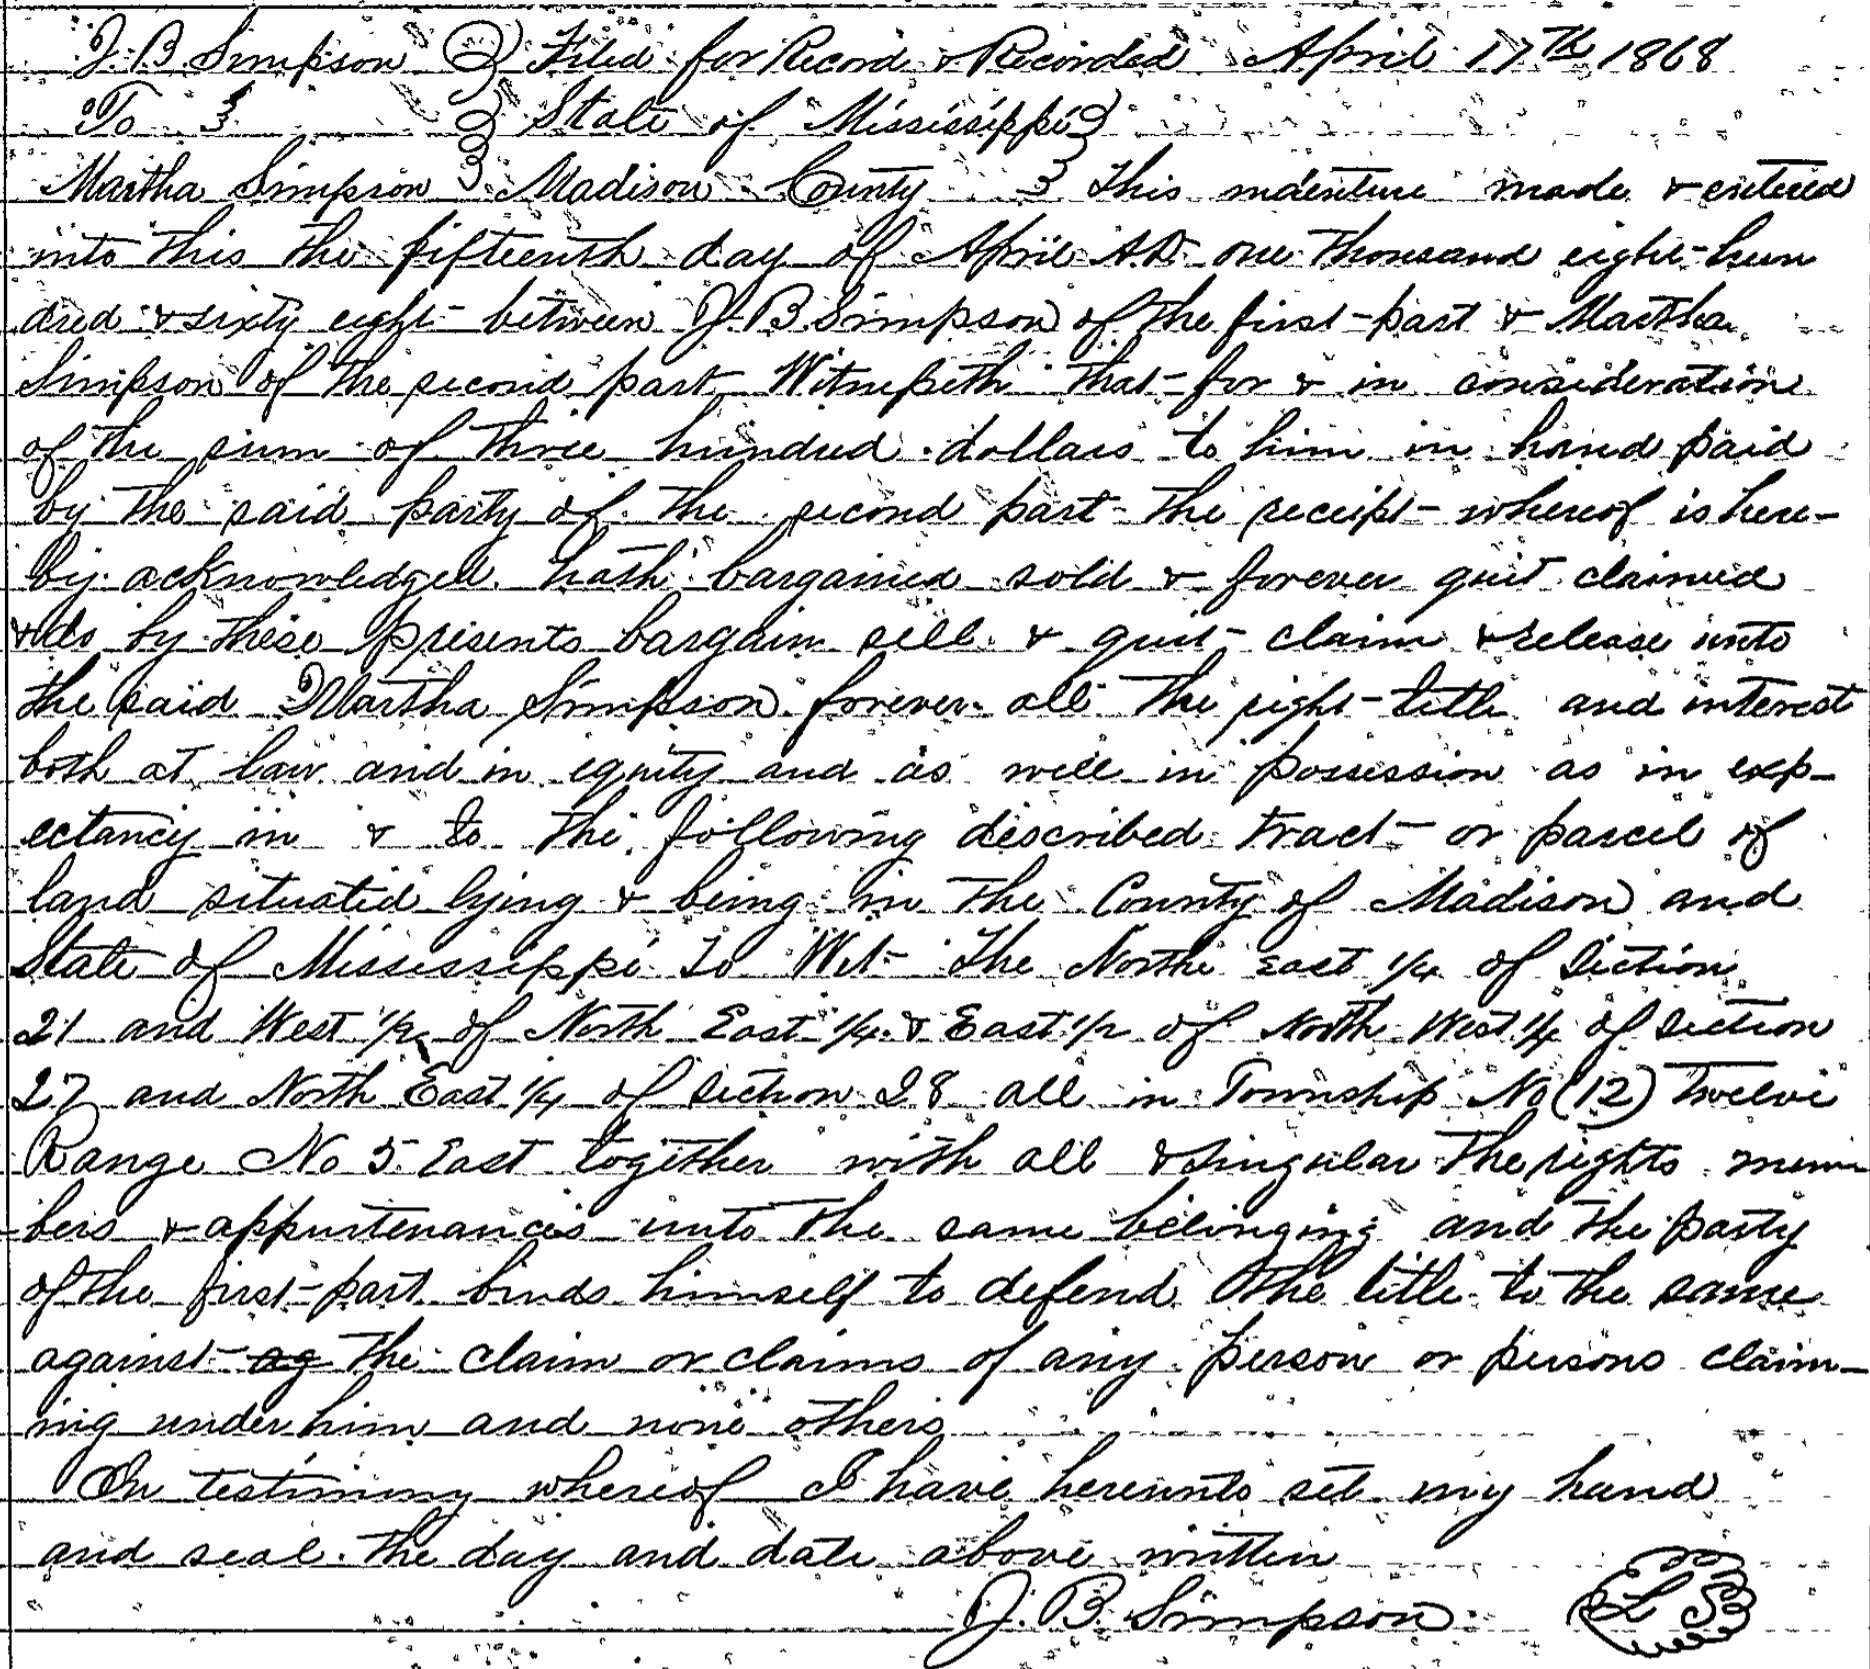 J. B. Simpson } Filed for Record & Recorded April 17th 1868
To } } State of Mississippi }
Martha Simpson } Madison County } This indenture made & entered
into this the fifteenth day of April A.D. one thousand eight-hun
dred & sixty eight between J. B Simpson of the first-part & Martha
Simpson of the second part Witnesseth that-for & in consideration
of the sum of three hundred dollars to him in hand paid
by the said party of the second part the receipt whereof is here-
by acknowledged hath bargained sold & forever quit claimed
& do by these presents bargain sell & quit-claim & release unto
the said Martha Simpson forever all the right-title and interest
both at law and in equity and as well in possession as in exp-
ectancy in & to the following described tract or parcel of
land situated lying & being in the County of Madison and
State of Mississippi To Wit- The North East 1/4 of Section
21 and West 1/2 of North East 1/4 & East 1/2 of North West 1/4 of Section
27 and North East 1/4 of Section 28 all in Township No (12) Twelve
Range No 5 East together with all & singular the rights mem
bers & appurtenances unto the same belonging and the party
of the first-part binds himself to defend the title to the same
against ag the claim or claims of any person or persons claim-
ing under him and none others
In testimony whereof I have hereunto set my hand
and seal the day and date above written
J. B. Simpson L S